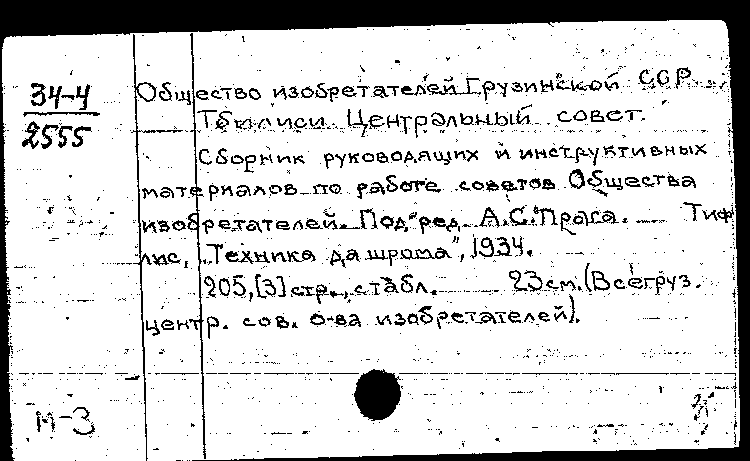 34-4
2555
Общество изобретателей Грузинской ССР.
Тбилиси. Центральный совет.
Сборник руководящих и инструктивных
материалов по работе советов Общества
изобретателей. Под ред. А.С. Праса. — Тиф
лис, "Техника да шрома", 1934.
205, [3] стр., с табл. — 23 см. (Всегруз.
центр. сов. о-ва изобретателей).
М-3